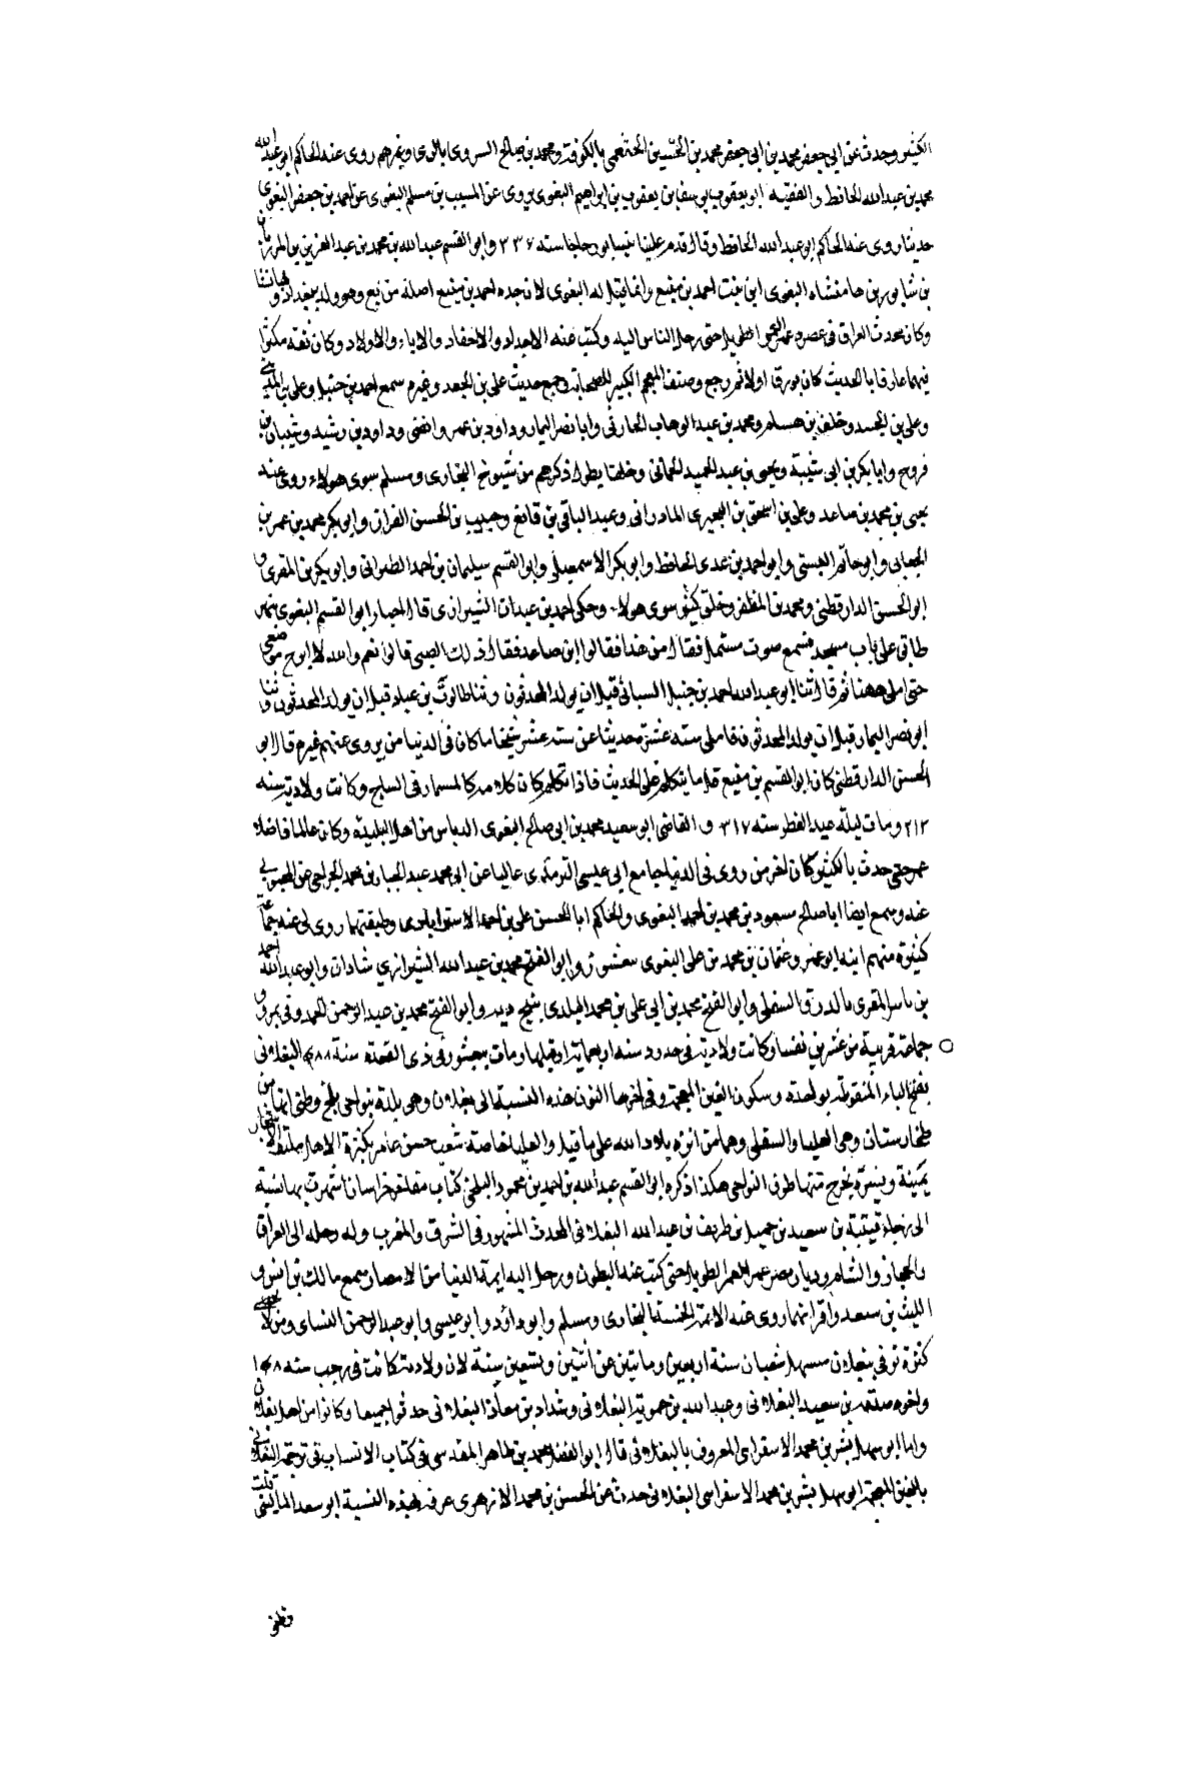 الكثير وحدث عن ابي جعفر محمد بن ابي جعفر محمد بن الحسين الخثعمي بالكوفة ومحمد بن صالح السروى بالرى وغيرهم روى عنه الحاكم ابو عبد الله
محمد بن عبد الله الحافظ والفقيه ابو يعقوب يوسف بن يعقوب بن ابراهيم البغوى يروى عن المسيب بن مسلم البغوى عن احمد بن جعفر البغوى
حديثا روى عنه الحاكم ابو عبد الله الحافظ وقال قدم علينا نيسابور حاجا سنه ٣٣٦ وابو القسم عبد الله بن محمد بن عبد العزيز بن المرزبان
بن شابور بن شاهنشاه البغوى ابن بنت احمد بن منيع وانما قيل له البغوى لان جده احمد بن منيع اصله من بغ وهو ولد ببغداد
وكان محدث العراق فى عصره عمر العمر الطويل حتى رحل الناس اليه وكتب عنه الاجداد والاحفاد والاباء والاولاد وكان ثقه مكثرا
فهما عارفا بالحديث كان يورق اولا ثم رجع وصنف المعجم الكبير للصحابة وجمع حديث على بن الجعد وغيره سمع احمد بن حنبل وعلى بن المدينى
وعلى بن الجعد وخلف بن هشام ومحمد بن عبد الوهاب الحارثى وابا نصر التمار وداود بن عمرو الضبى وداود بن رشيد وشيبان بن
فروخ وابا بكر بن ابى شيبة ويحيى بن عبد الحميد الحمانى وخلقا يطول ذكرهم من شيوخ البخارى ومسلم سوى هولاء روى عنه
يحيى بن محمد بن صاعد وعلى بن اسحق بن البحيرى المادرانى وعبد الباقى بن قانع وحبيب بن الحسن القزاز وابو بكر محمد بن عمر بن
الجعابى وابو حاتم البستى وابو احمد بن عدى الحافظ وابو بكر الاسمعيلى وابو القسم سليمان بن احمد الطبرانى وابو بكر بن المقرى و
ابو الحسن الدارقطنى ومحمد بن المظفر وخلق كثير سوى هولاء وحكى احمد بن عبدان الشيرازى قال اجتاز ابو القسم البغوى بنهر
طابق على باب مسجد فسمع صوت مستمل فقال من هذا فقالوا ابن صاعد فقال ذلك الصبى قالوا نعم والله لا ابرح موضعى
حتى املى ههنا ثم قال ثنا ابو عبد الله احمد بن حنبل الشيبانى قبل ان يولد المحدثون وثنا طالوت بن عباد قبل ان يولد المحدثون وثنا
ابو نصر التمار قبل ان يولد المحدثون فاملى سته عشر حديثا عن سته عشر شيخا ما كان فى الدنيا من يروى عنهم غيره قال ابو
الحسن الدارقطنى كان ابو القسم بن منيع قل ما يتكلم على الحديث فاذا تكلم كان كلامه كالمسمار فى الساج وكانت ولادته سنه
٢١٣ ومات ليلة عيد الفطر سنه ٣١٧ و القاضى ابو سعيد محمد بن ابى صالح البغوى الدباس من اهل البلدة وكان عالما فاضلا
عمر حتى حدث بالكثير وكان اخر من روى فى الدنيا جامع ابى عيسى الترمذى عاليا عن ابى محمد عبد الجبار بن محمد الجراحى عن المحبوبى
عنه وسمع ايضا ابا صالح مسعود بن محمد بن احمد البغوى والحاكم ابا الحسن على بن احمد الاستراباذى وطبقتهما روى لى عنه جماعة
كثيرة منهم ابنه ابو عمرو عثمان بن محمد بن على البغوى وابو الفتح محمد بن عبد الله الشيرازى وابو عبد الله احمد
بن ياسر المقرى بالدرق السفلى وابو الفتح محمد بن ابى على بن محمد وابو الفتح محمد بن عبد الرحمن الحمدونى بمرو و
جماعة قريبة من عشرين نفسا وكانت ولادته فى حدود سنه اربعمائة او قبلها ومات ببغشور فى ذى القعدة سنة ٤٨٨ البغلانى
بفتح الباء المنقوطة بواحدة وسكون الغين المعجمة وفى اخرها النون هذه النسبة الى بغلان وهى بلدة بنواحى بلخ وظنى انها من
طخارستان وهى العليا والسفلى وهما من انزه بلاد الله على ما قيل والعليا خاصة شعب حسن عامر بكثرة الانهار ملتف الاشجار
يمينة ويسرة يخرج منها طرق النواحى هكذا ذكره ابو القسم عبد الله بن احمد بن محمود البلخى كتاب مفاخر خراسان اشتهرت بها نسبة
الى رجلا قتيبة بن سعيد بن جميل بن طريف بن عبد الله البغلانى المحدث المشهور فى الشرق والمغرب وله رحله الى العراق
والحجاز والشام وديار مصر عمر العمر الطويل حتى كتب عنه البطون ورحل اليه ايمة الدنيا من الامصار سمع مالك بن انس و
الليث بن سعد واقرانهما روى عنه الائمة الخمسة البخارى ومسلم وابو داود وابو عيسى وابو عبد الرحمن النساى ومن لا يحصى
كثرة توفى ببغلان مستهل شعبان سنة اربعين وماتين عن اثنتين وتسعين سنة لان ولادته كانت فى رجب سنه ١٤٨
واخوه صدقه بن سعيد البغلانى وعبد الله بن حمويه البغلانى وشداد بن معاذ البغلانى حدثوا جميعا وكانوا من اهل بغلان
واما ابو سهل بشر بن محمد الاسفراى المعروف بالبغلانى قال ابو الفضل محمد بن طاهر المقدسى فى كتاب الانساب فى ترجمة البغلانى
بالغين المعجمة ابو سهل بشر بن محمد الاسفراسى البغلانى حدث عن الحسن بن محمد الازهرى عرفه بهذه النسبة ابو سعد المالينى قلت